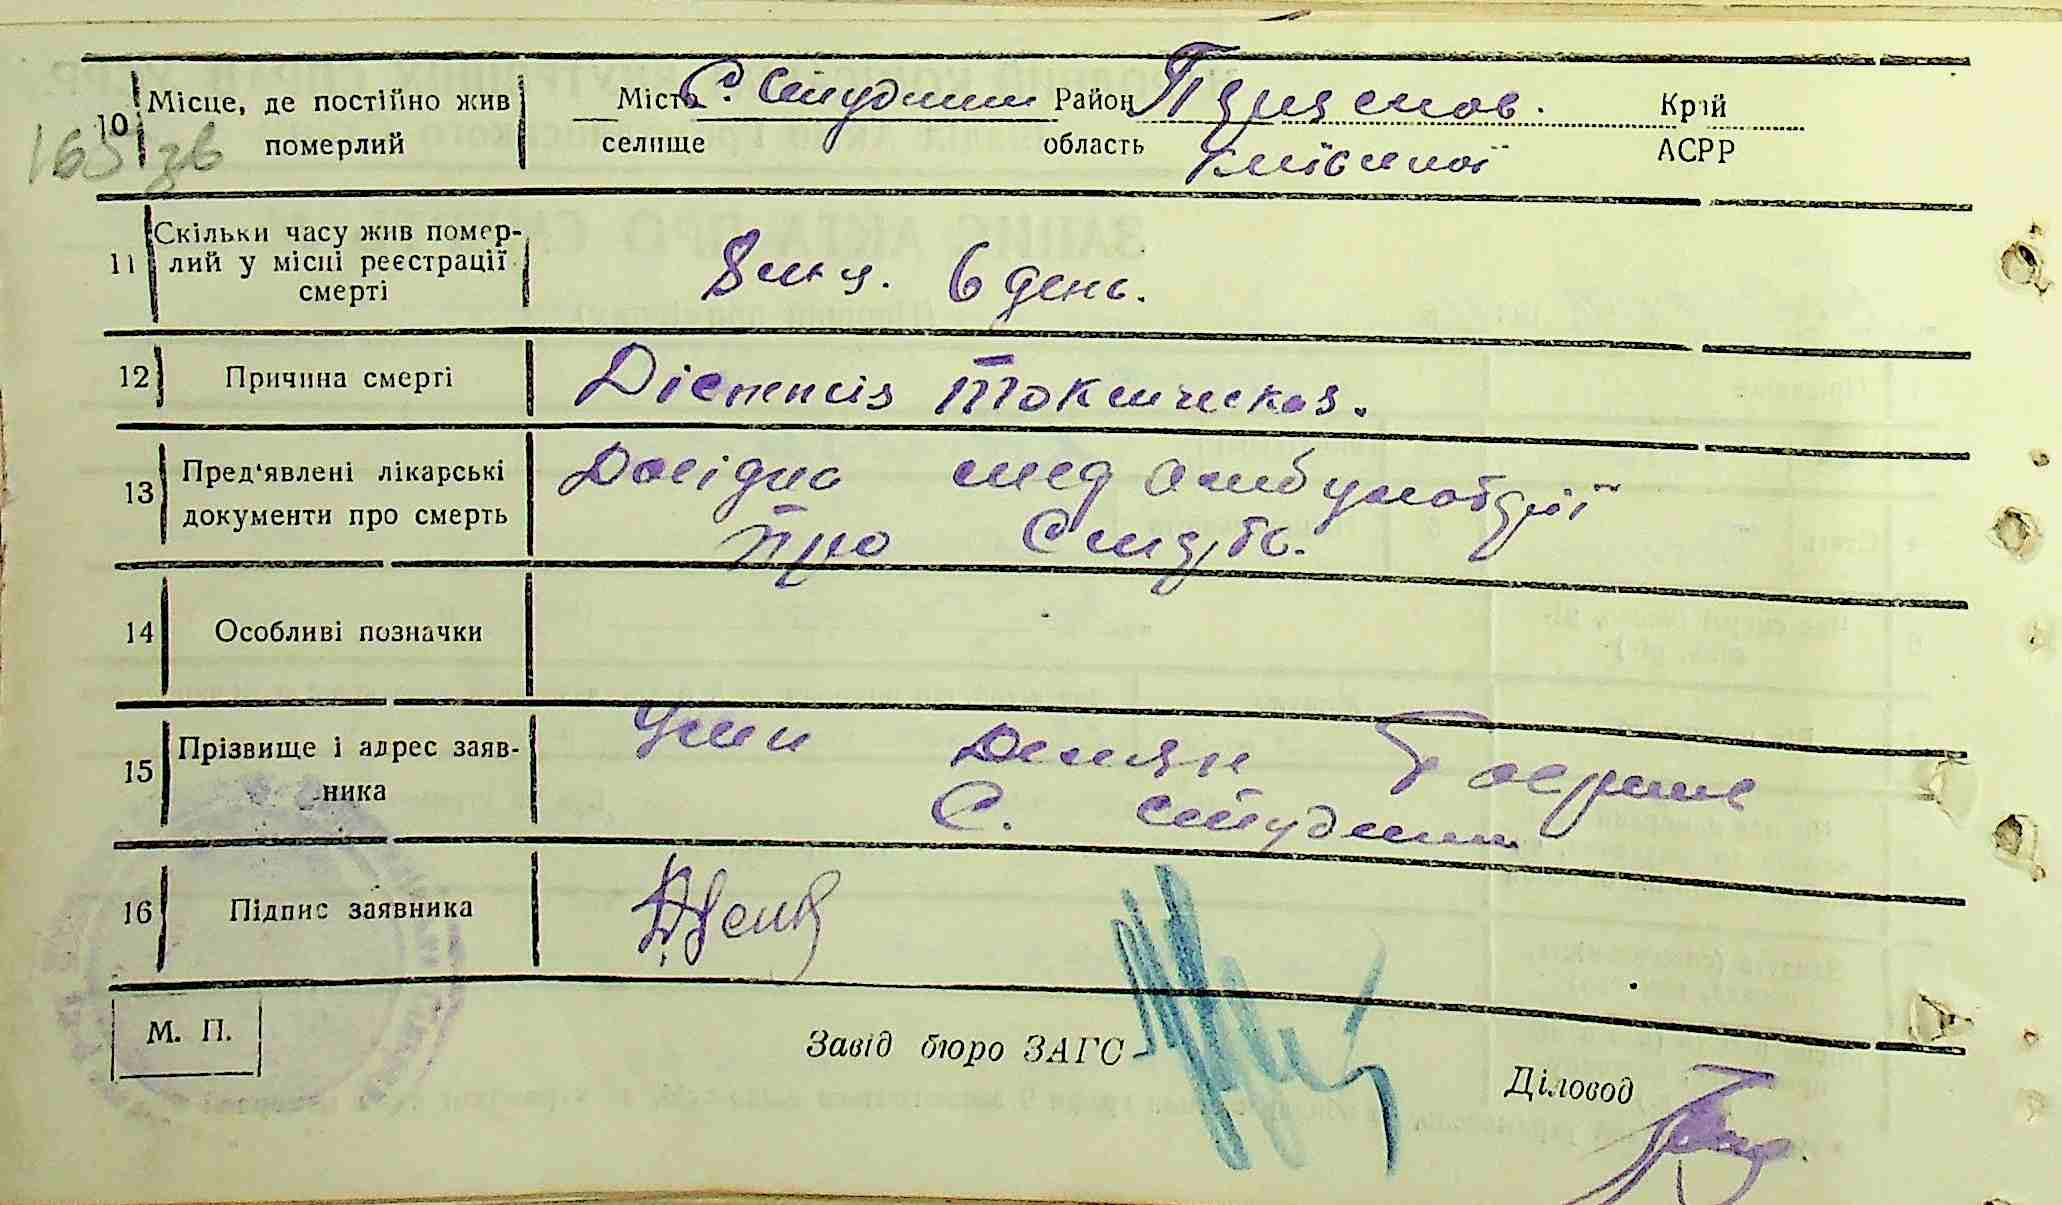 10 Місце, де постійно жив померлий
Місто С. Студени Район Піщанов. Край
селище область АСРР
165 зв
11 Скільки часу жив помер-
лий у місці реєстрації
смерті
8 міс. 6 день.
12 Причина смерті
Діспепсія токсическая.
13 Пред'явлені лікарські
документи про смерть
Довідка мед амбулаторії
про смерть.
14 Особливі позначки
15 Прізвище і адрес заяв-
ника
Демян
С. Студени
16 Підпис заявника
М. П.
Завід бюро ЗАГС
Діловод